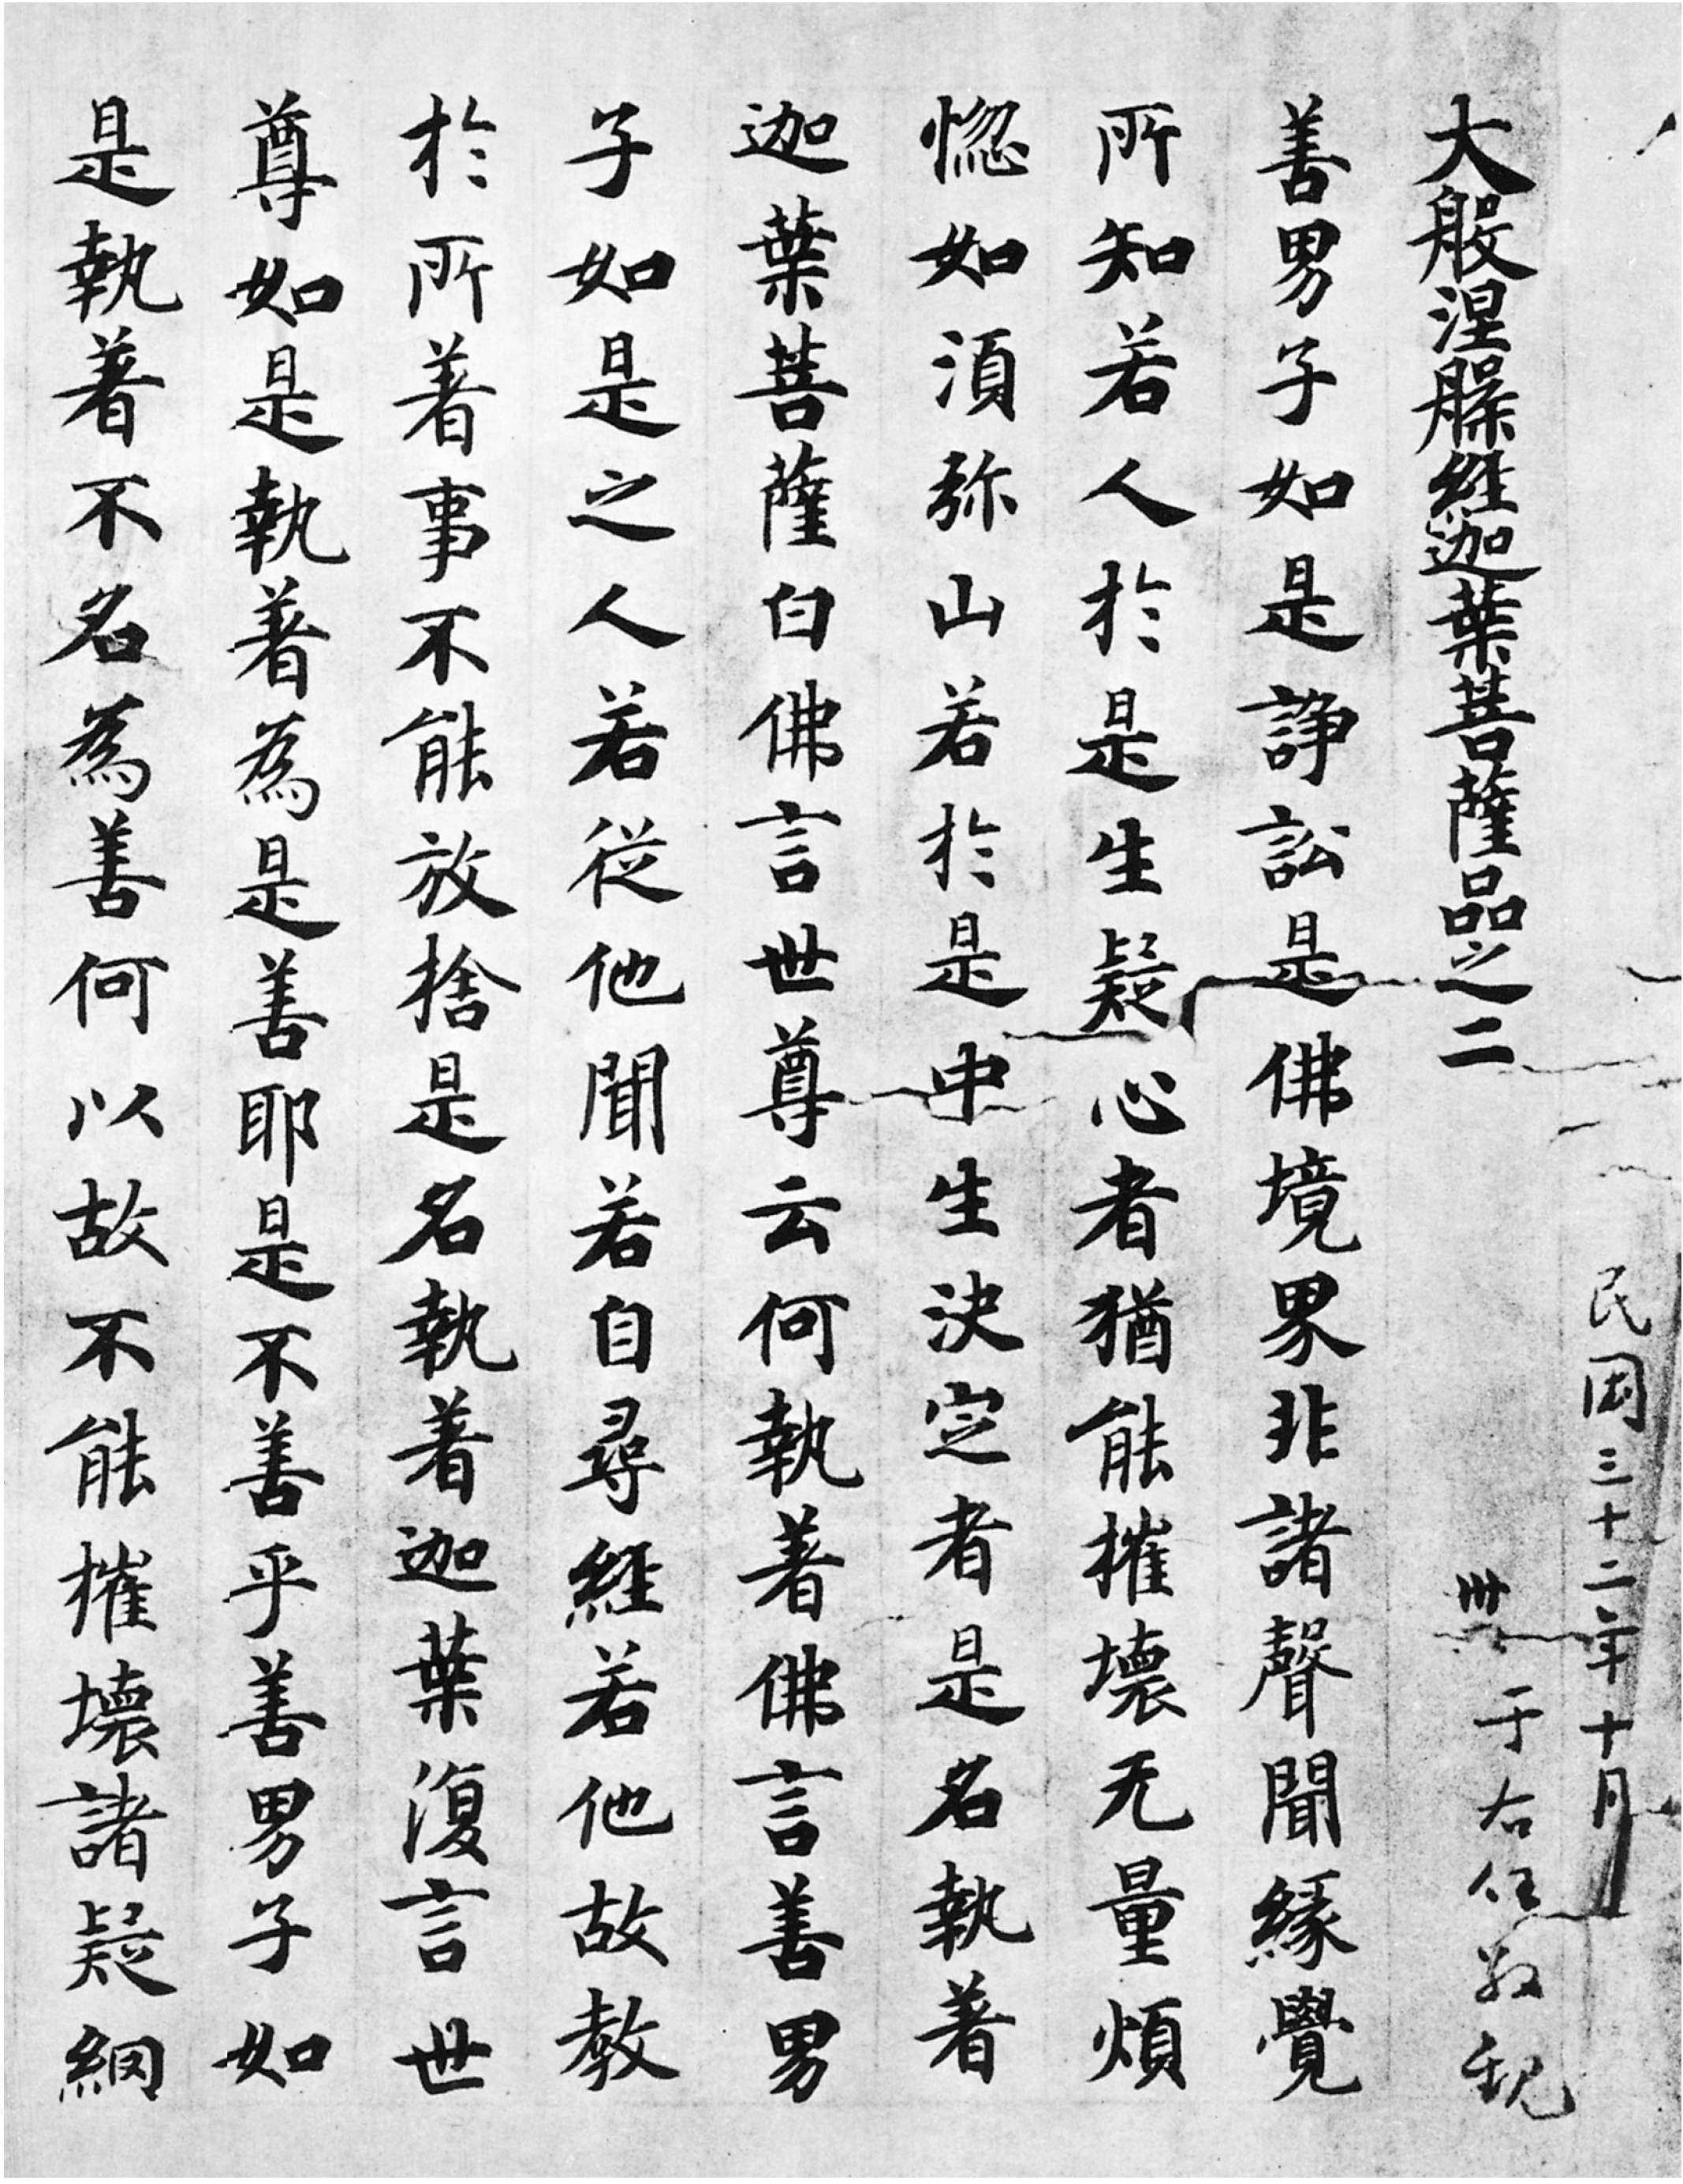 民国三十二年十月
于右任敬觀
大般涅槃經迦葉菩薩品之二 卌
善男子如是諍訟是佛境界非諸聲聞緣覺
所知若人於是生疑心者猶能摧壞无量煩
惚如湏弥山若於是中生決定者是名執著
迦葉菩薩白佛言世尊云何執著佛言善男
子如是之人若從他聞若自尋經若他故教
於所著事不能放捨是名執著迦葉復言世
尊如是執著為是善耶是不善乎善男子如
是執著不名為善何以故不能摧壞諸疑網